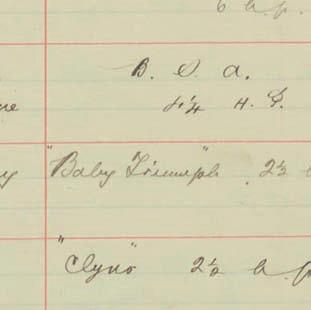 6 h.p.
B. S. A.
4¼ H. P.
"Baby Triumph" 2½
"Clyno" 2½ h.p